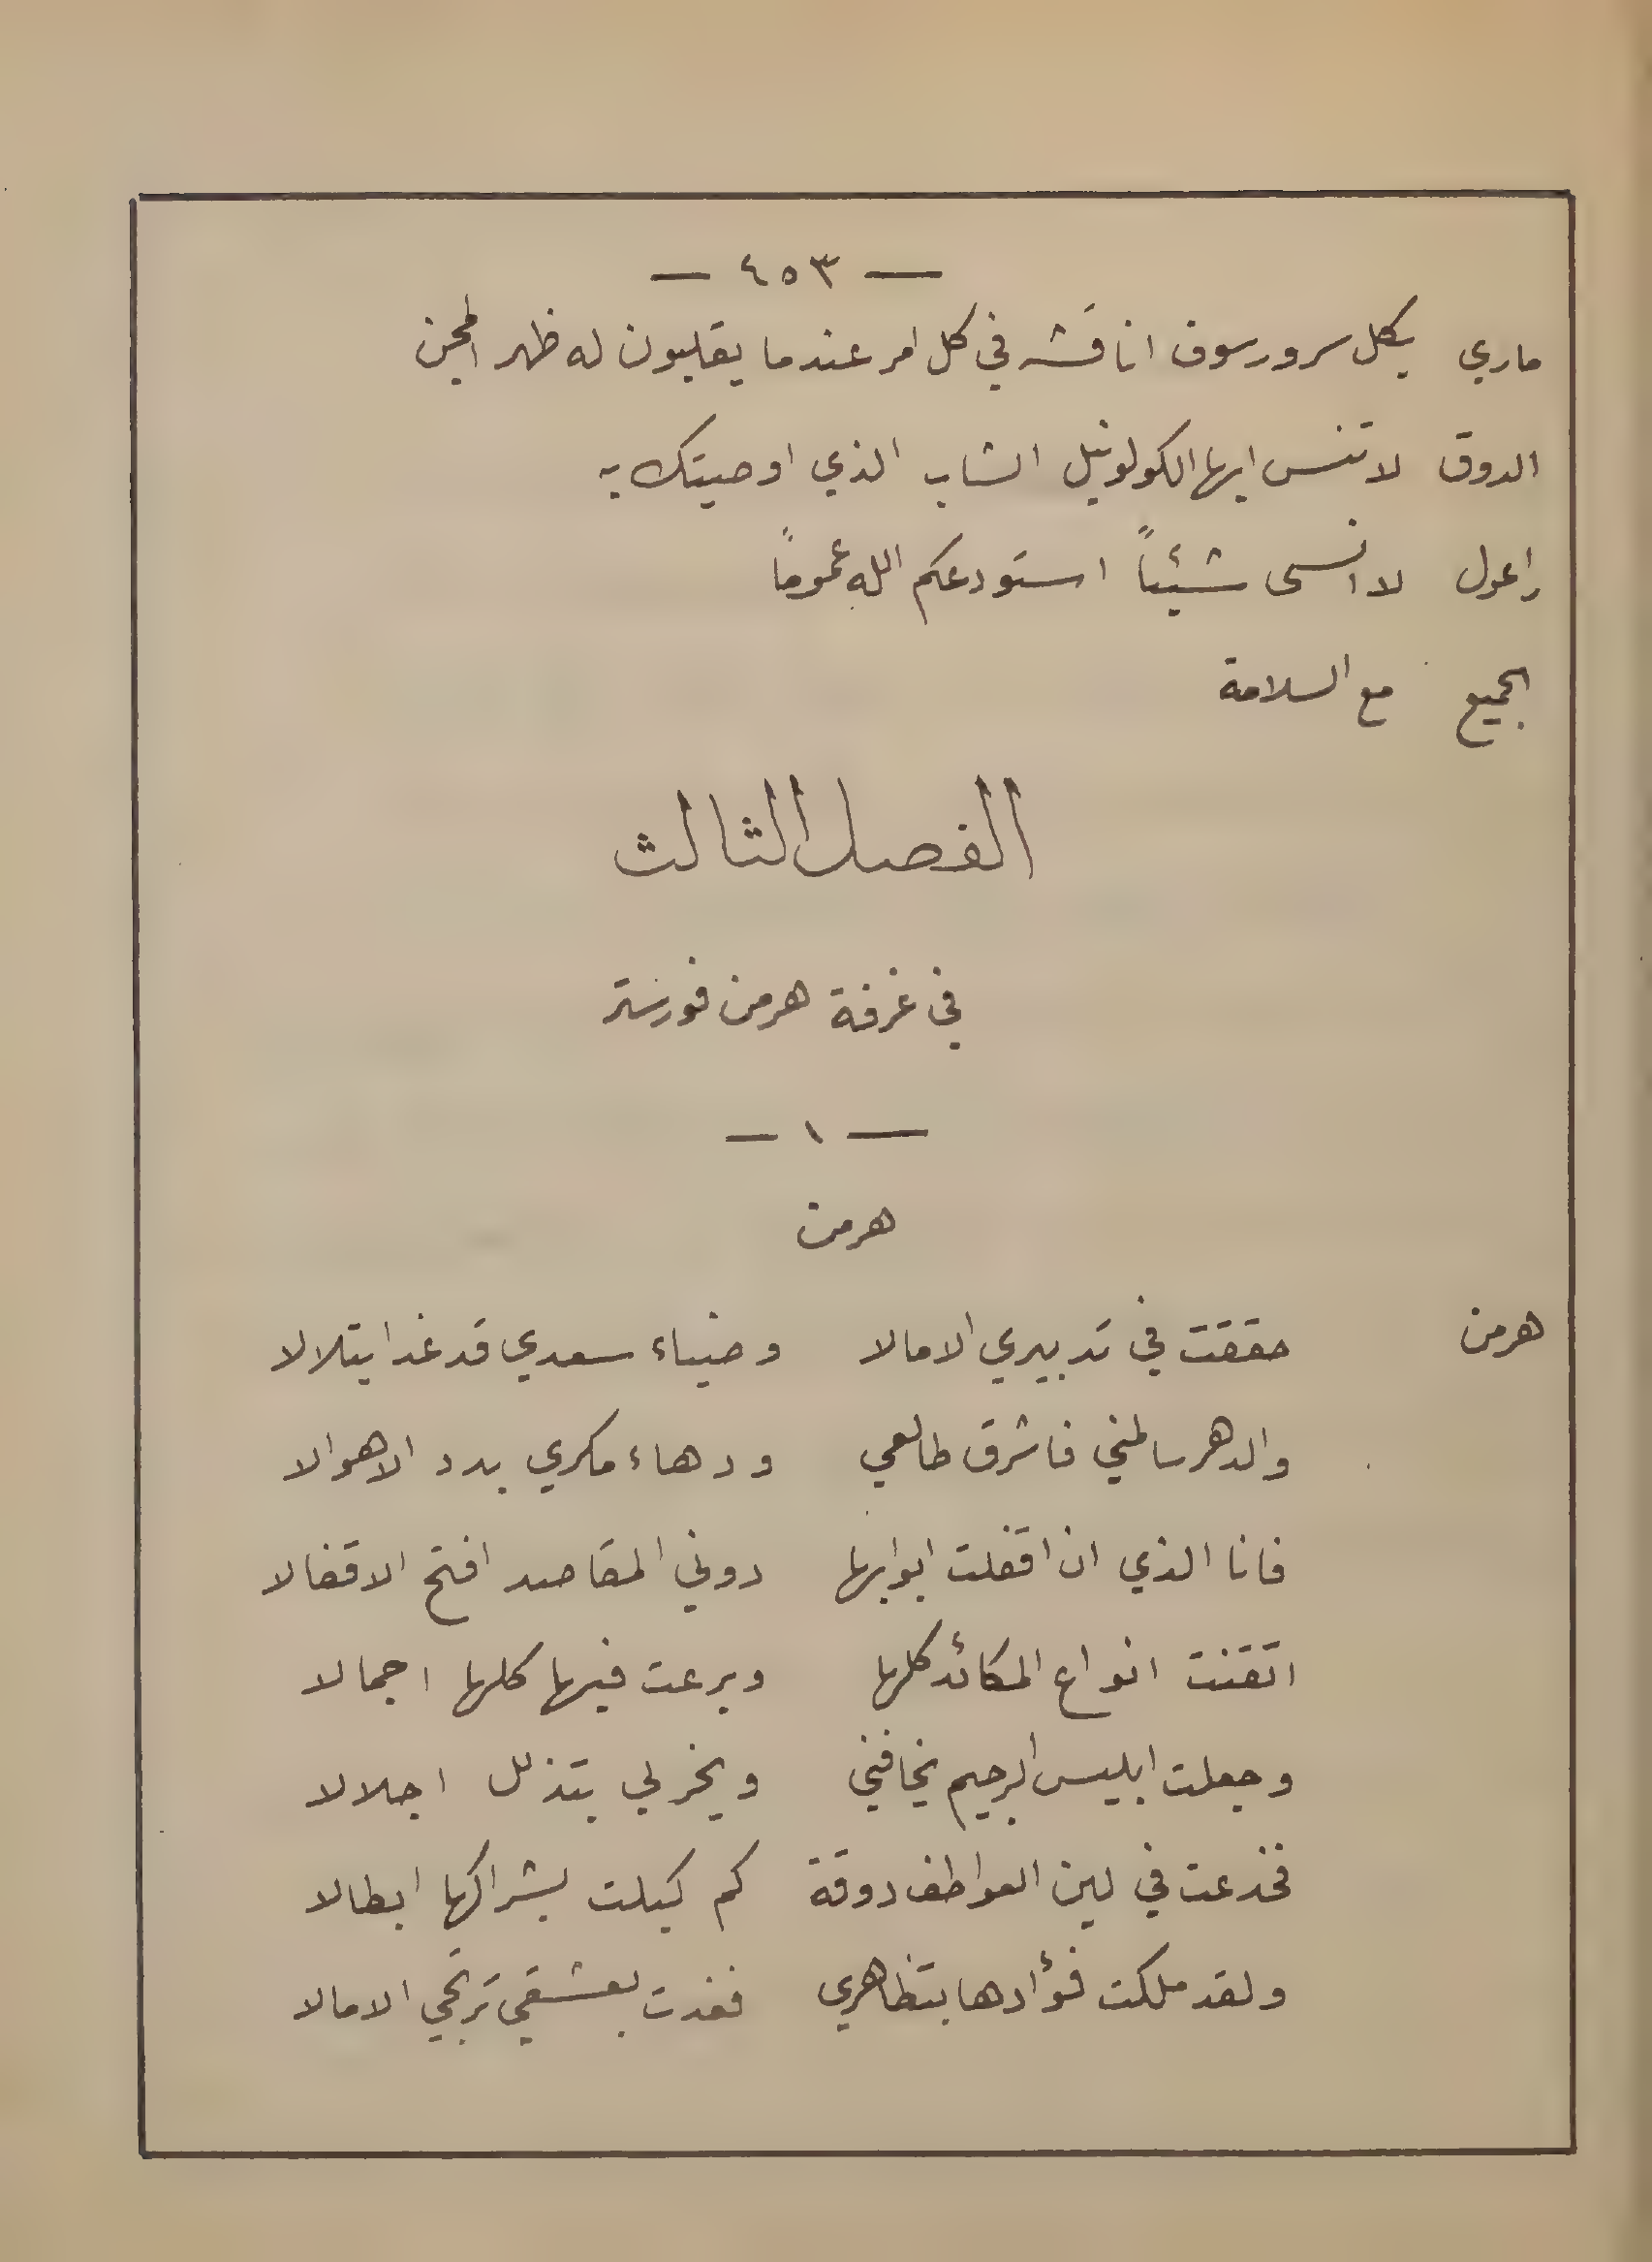 — ٤٥٣ —
ماري بكل سرور سوف اناقشه في كل امر عندما يقلبون له ظهر المجن
الدوق لا تنس ايها الكولونيل الشاب الذي اوصيتك به
راعول لا انسى شيئاً استودعكم الله عموماً
الجميع مع السلامة
الفصل الثالث
في غرفة هرمن فورستر
— ١ —
هرمن
هرمن حققت في تدبيري الامالا وضياء سعدي قد غدا يتلالا
والدهر سالمني فاشرق طالعي ودهاء مكري بدد الاهوالا
فانا الذي ان اقفلت ابوابها دوني المقاصد افتح الاقفالا
اتقنت انواع المكائد كلها وبرعت فيها كلها اجمالا
وجعلت ابليس الرجيم يخافني ويخر لي بتذلل اجلالا
فخدعت في لين العواطف دوقة كم كبلت بشراكها ابطالا
ولقد ملكت فؤادها بتظاهري فغدت بعشقي ترتجي الامالا